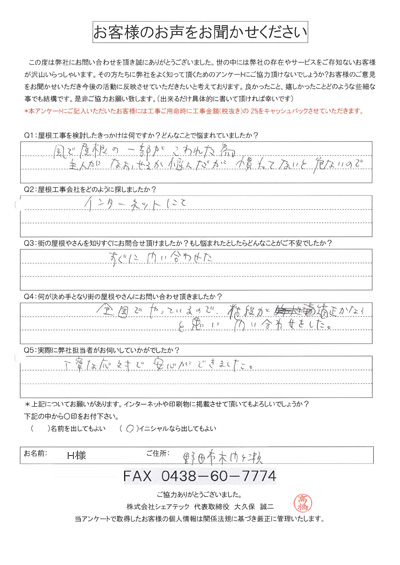 お客様のお声をお聞かせください
この度は弊社にお問い合わせを頂き誠にありがとうございました。世の中には弊社の存在やサービスをご存知ないお客様
が沢山いらっしゃいます。その方たちに弊社をよく知って頂くためのアンケートにご協力頂けないでしょうか?お客様のご意見
をお聞かせいただき今後の活動に反映させていただきたいと考えております。良かったこと、嬉しかったことどのような些細な
事でも結構です。是非ご協力お願い致します。(出来るだけ具体的に書いて頂ければ幸いです)
*本アンケートにご記入いただいたお客様には工事ご用命時に工事金額(税抜き)の2%をキャッシュバックさせていただきます。
Q1:屋根工事を検討したきっかけは何ですか?どんなことで悩まれていましたか?
風で屋根の一部がこわれた為
主人がなおせるか悩んだが慣れてないと危ないので
Q2:屋根工事会社をどのように探しましたか?
インターネットにて
Q3:街の屋根やさんを知りすぐにお問合せ頂けましたか?もし悩まれたとしたらどんなことがご不安でしたか?
すぐに問い合わせた
Q4:何が決め手となり街の屋根やさんにお問い合わせ頂きましたか?
全国でやっているので、値段が適正かなぁ
と思い問い合わせをした。
Q5:実際に弊社担当者がお伺いしていかがでしたか?
丁寧な応対で安心ができました。
*上記についてお願いがあります。インターネットや印刷物に掲載させて頂いてもよろしいでしょうか?
下記の中から〇印をお付下さい。
( )名前を出してもよい (〇)イニシャルなら出してもよい
お名前: H様 ご住所: 野田市木間ヶ瀬
FAX 0438-60-7774
ご協力ありがとうございました。
株式会社シェアテック 代表取締役 大久保 誠二
当アンケートで取得したお客様の個人情報は関係法規に基づき厳正に管理いたします。
高橋